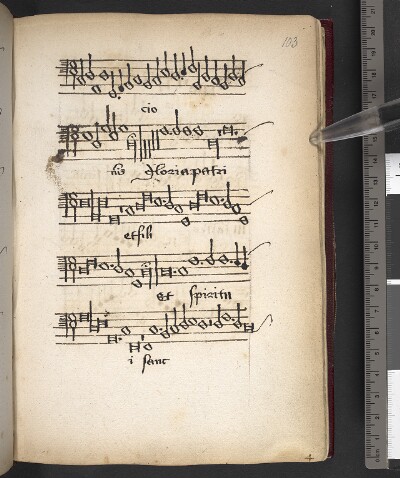 103
cio
nis Gloria patri
et fili
et spiritu
i sanc